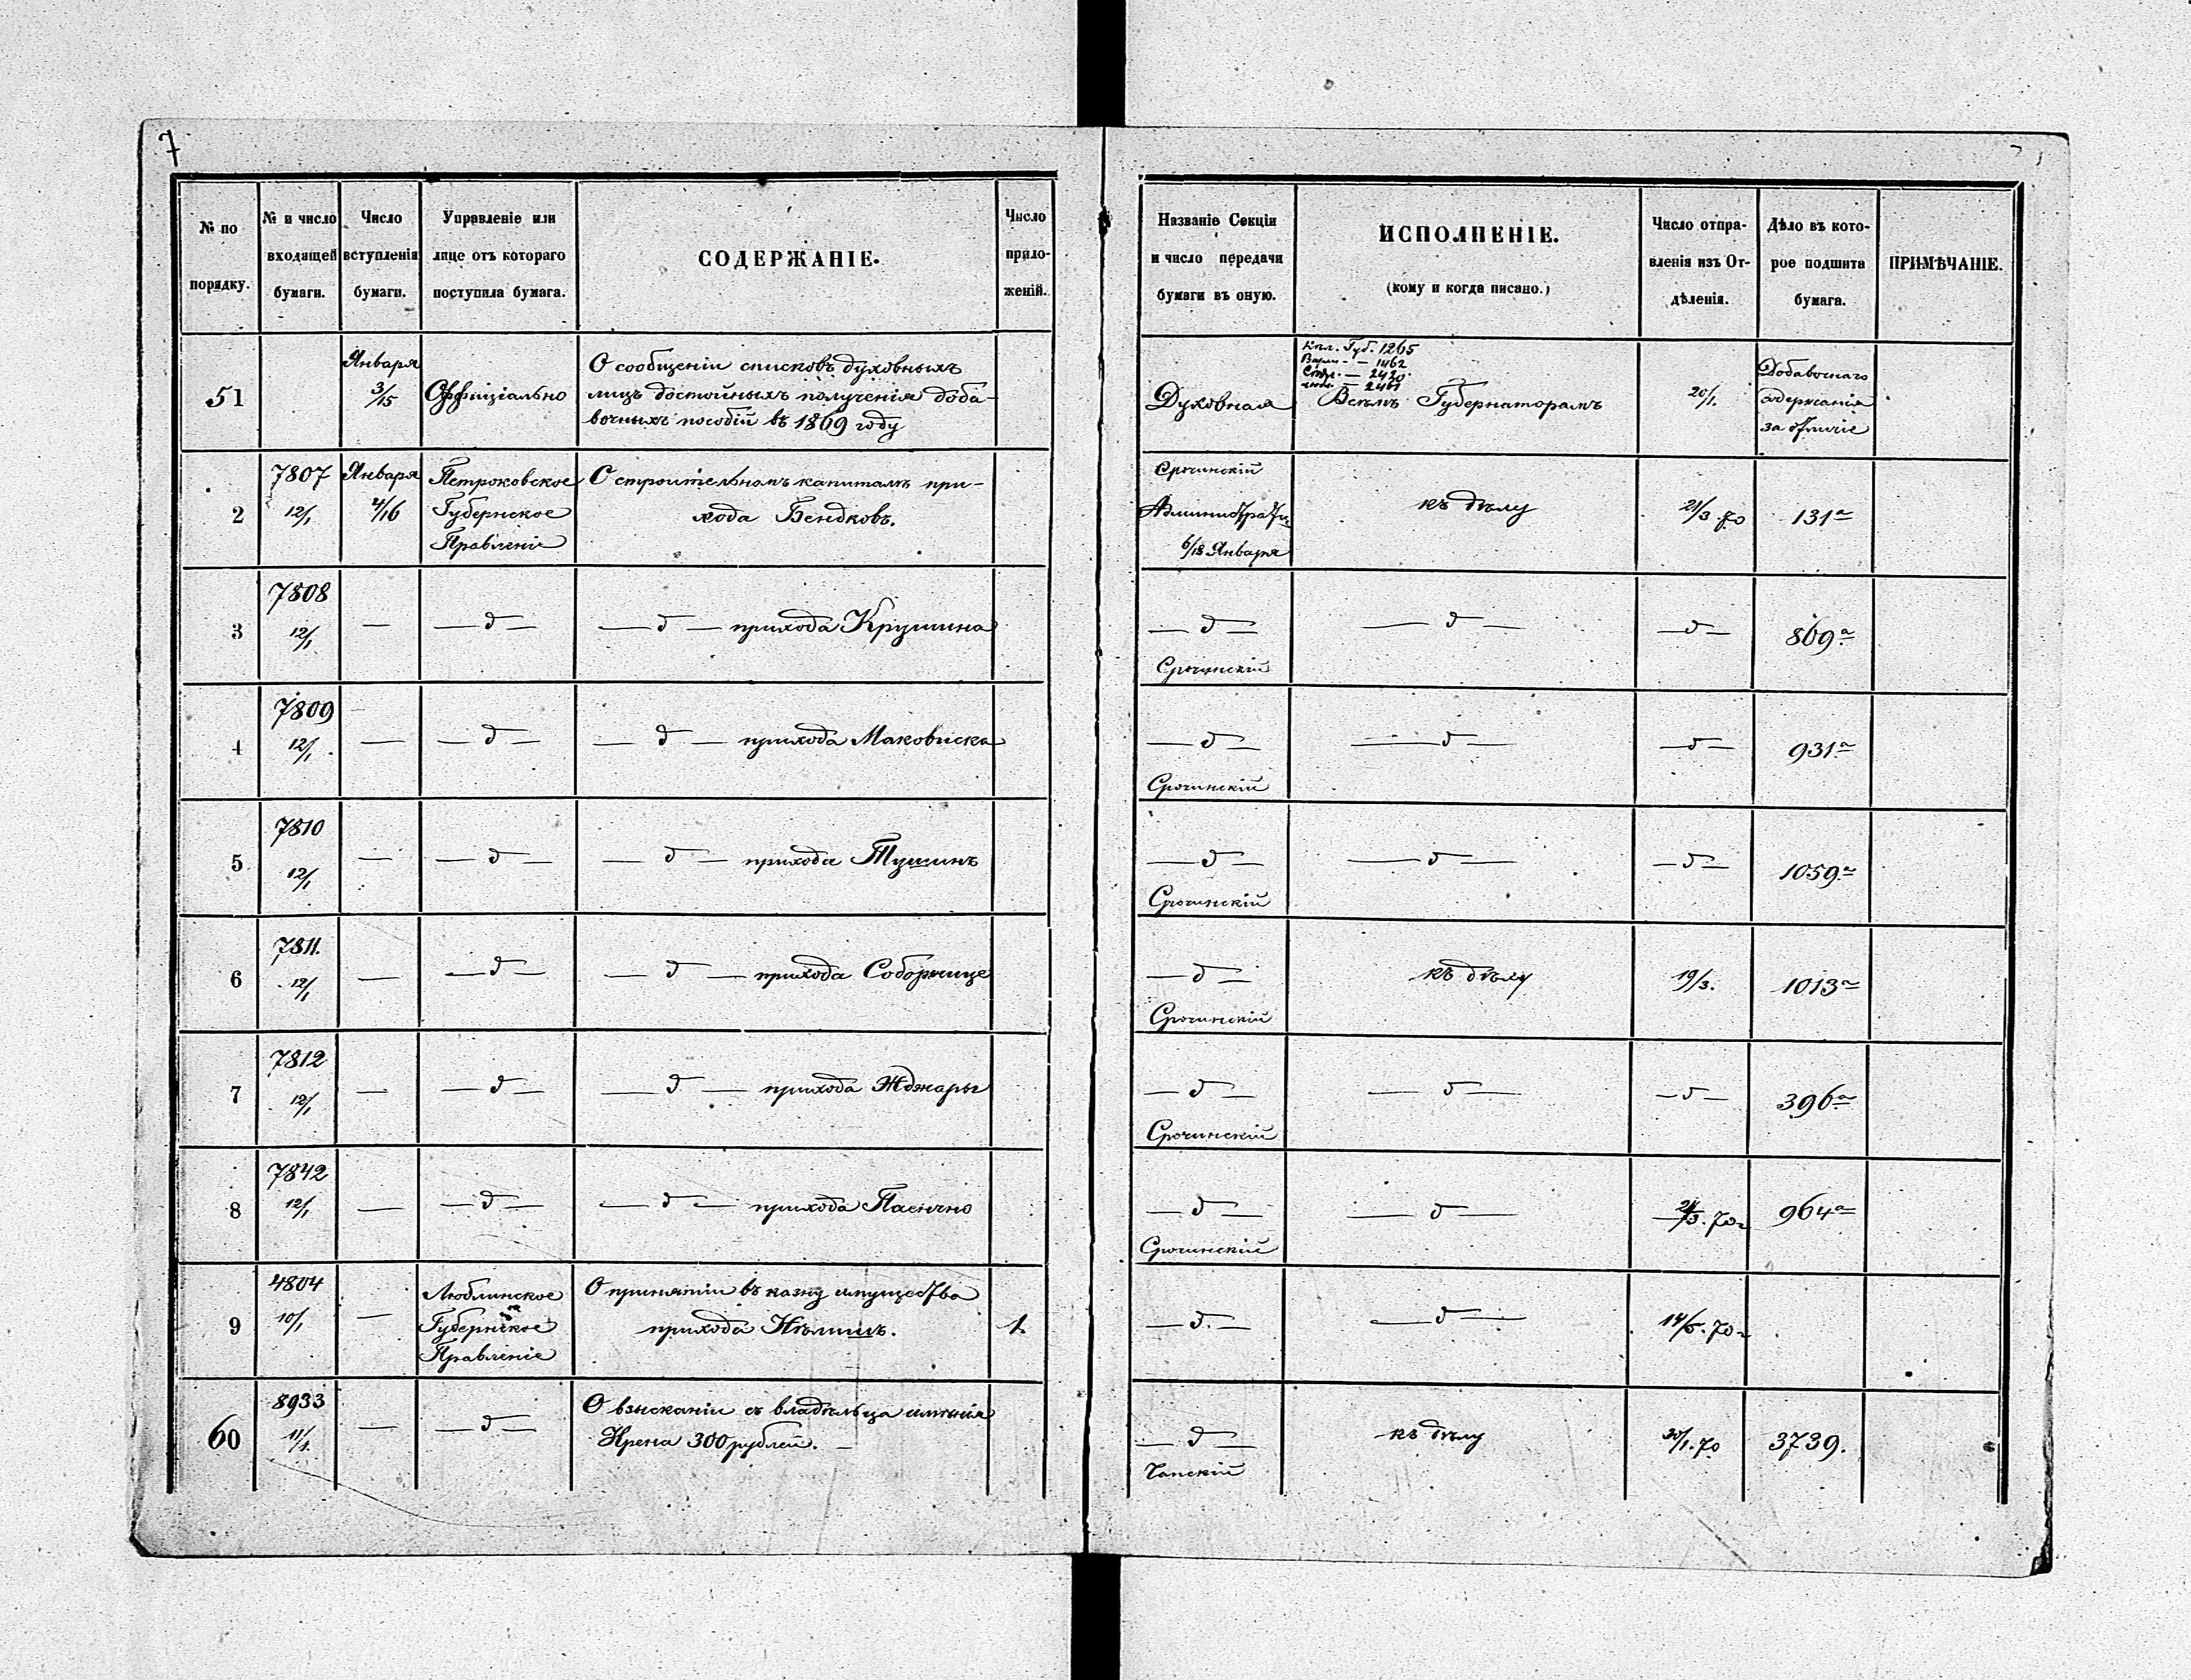 7
№ по порядку.
№ и число входящей бумаги.
Число вступленія бумаги.
Управленіе или лице отъ котораго поступила бумага.
СОДЕРЖАНІЕ.
Число прило-
женій.
Названіе Секціи и число передачи бумаги въ оную.
ИСПОЛНЕНІЕ.
(кому и когда писано.)
Число отпра-
вленія изъ От-
дѣленія.
Дѣло въ кото-
рое подшита
бумага.
ПРИМѢЧАНІЕ.
51
Января
3/15
Оффиціально
О сообщеніи списковъ духовныхъ
лицъ достойныхъ полученія доба-
вочныхъ пособій въ 1869 году
Духовная
Губ. 1265
— 1462
— 2420
— 2461
Всѣмъ Губернаторамъ
20/1.
Добавочнаго
содержанія
за отличіе
2
7807
12/1
Января
4/16
Петроковское
Губернское
Правленіе
О строительномъ капиталѣ при-
хода Бендковъ.
Срочинскій
6/18 Января
къ дѣлу
21/3 70
131а
3
7808
12/1
—
— д —
— д — прихода Крушина
— д —
Срочинскій
— д —
— д —
869а
4
7809
12/1
—
— д —
— д — прихода Маковиска
— д —
Срочинскій
— д —
— д —
931а
5
7810
12/1
—
— д —
— д — прихода Тушинъ
— д —
Срочинскій
— д —
— д —
1059а
6
7811.
12/1
—
— д —
— д — прихода Соборжице
— д —
Срочинскій
къ дѣлу
19/3.
1013а
7
7812
12/1
—
— д —
— д — прихода Жджары
— д —
Срочинскій
— д —
— д —
396а
8
7842
12/1
—
— д —
— д — прихода Пасѣчно
— д —
Срочинскій
— д —
21/3. 70г
964а
9
4804
10/1
—
Люблинское
Губернское
Правленіе
О принятіи въ казну имущества
прихода Нѣлишъ.
1.
— д. —
— д —
14/5. 70г
60
8933
11/1.
—
— д —
О взысканіи съ владѣльца имѣнія
300 рублей. —
— д —
Чапскій
къ дѣлу
30/1. 70
3739.